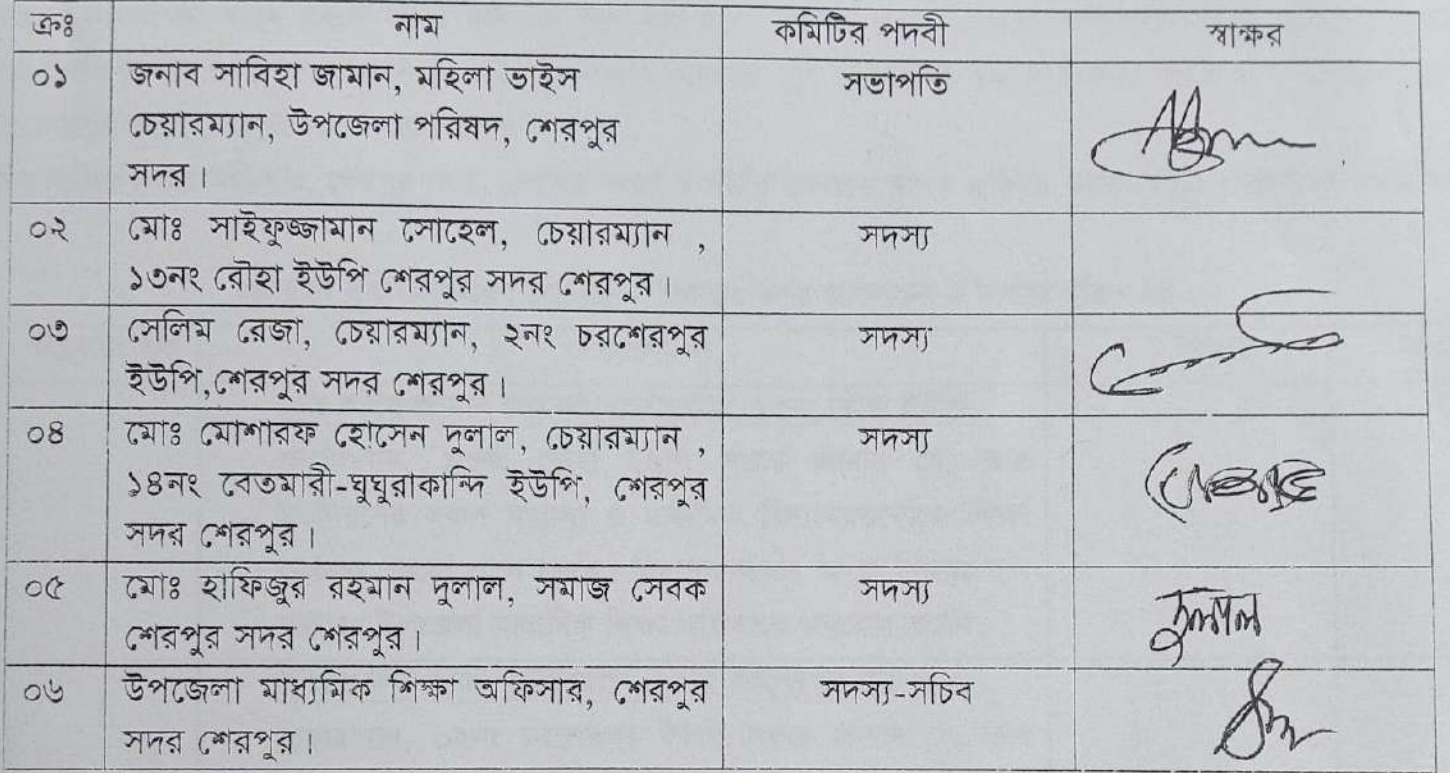 ক্রঃ নাম কমিটির পদবী স্বাক্ষর
০১ জনাব সাবিহা জামান, মহিলা ভাইস সভাপতি
চেয়ারম্যান, উপজেলা পরিষদ, শেরপুর
সদর।
০২ মোঃ সাইফুজ্জামান সোহেল, চেয়ারম্যান , সদস্য
১৩নং রৌহা ইউপি শেরপুর সদর শেরপুর।
০৩ সেলিম রেজা, চেয়ারম্যান, ২নং চরশেরপুর সদস্য
ইউপি,শেরপুর সদর শেরপুর।
০৪ মোঃ মোশারফ হোসেন দুলাল, চেয়ারম্যান, সদস্য
১৪নং বেতমারী-ঘুঘুরাকান্দি ইউপি, শেরপুর
সদর শেরপুর।
০৫ মোঃ হাফিজুর রহমান দুলাল, সমাজ সেবক সদস্য
শেরপুর সদর শেরপুর। দুলাল
০৬ উপজেলা মাধ্যমিক শিক্ষা অফিসার, শেরপুর সদস্য-সচিব
সদর শেরপুর।